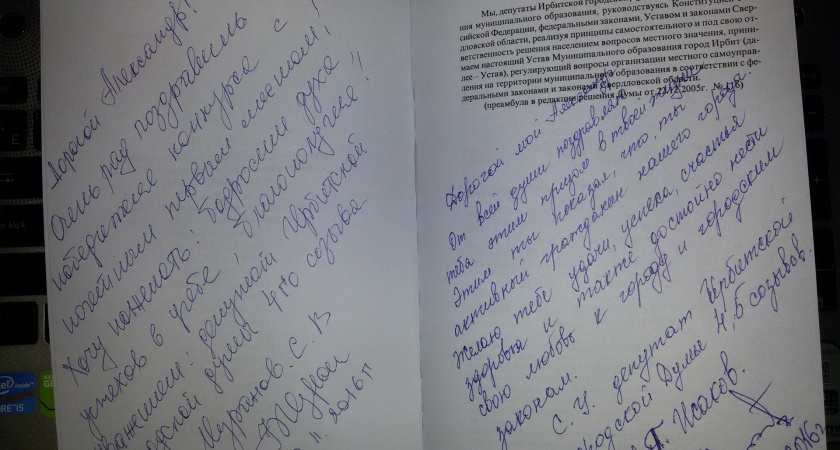 Дорогой Александр!
Очень рад поздравить
победителя конкурса с
почётным первым местом!
Хочу пожелать: бодрости духа!
успехов в учебе! благополучия!!
депутат Ирбитской
думы 4го созыва
С. В
11. 2016 г
intel inside
CORE i5
Мы, депутаты Ирбитской городской
ния муниципального образования, руководствуясь Конституцией
сийской Федерации, федеральными законами, Уставом и законами Свер-
дловской области, реализуя принципы самостоятельного и под свою от-
ветственность решения населением вопросов местного значения, прини-
маем настоящий Устав Муниципального образования город Ирбит (да-
лее – Устав), регулирующий вопросы организации местного самоуправ-
ления на территории муниципального образования в соответствии с фе-
деральными законами и законами Свердловской области.
(преамбула в редакции решения Думы от 22.12.2005г. № 116)
Дорогой мой Александр
От всей души поздравляю
тебя этим призом в твоей жизни.
Этим ты показал, что ты
активный гражданин нашего города.
Желаю тебе удачи, успеха, счастья
здоровья и также достойно нести
свою любовь к городу и городским
законам.
С. У. депутат Ирбитской
городской Думы 4, 5 созывов.
Г. Исаков.